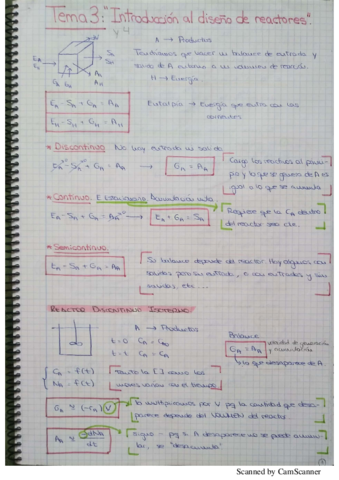 Tema 3: "Introducción al diseño de reactores".
y 4
A → Productos
Tendríamos que hacer un balance de entrada y
salida de A entorno a un volumen de reacción.
H → Energía
E_A - S_A + G_A = A_A
E_H - S_H + G_H = A_H
Entalpía → Energía que entra con las
corrientes
* Discontinuo: No hay entrada ni salida
E_A - S_A + G_A = A_A → G_A = A_A
Cargo los reactivos al
y lo que se genera de A es
igual a lo que se acumula
* Continuo: E. Estacionario. Acumulación nula
E_A - S_A + G_A = A_A → E_A + G_A = S_A
Requiere que la C_A dentro
del reactor sea cte.
* Semicontinuo:
E_A - S_A + G_A = A_A
Su balance depende del reactor. Hay algunos con
salidas pero sin entrada, o con entradas y sin
salidas, etc...
REACTOR DISCONTINUO ISOTERMO
A → Productos
t=0 C_A = C_A0
t=t C_A = C_A
Balance
G_A = A_A
velocidad de
lo que desaparece de A
C_A = f(t)
N_A = f(t)
tanto la [ ] como los
moles varían con el tiempo
G_A = (-r_A) V
lo multiplicamos por V pq la cantidad que desa-
parece depende del VOLUMEN del reactor.
A_A = -dN_A
dt
signo - pq si A desaparece no se puede acumu-
lar, se "desacumula"
Scanned by CamScanner